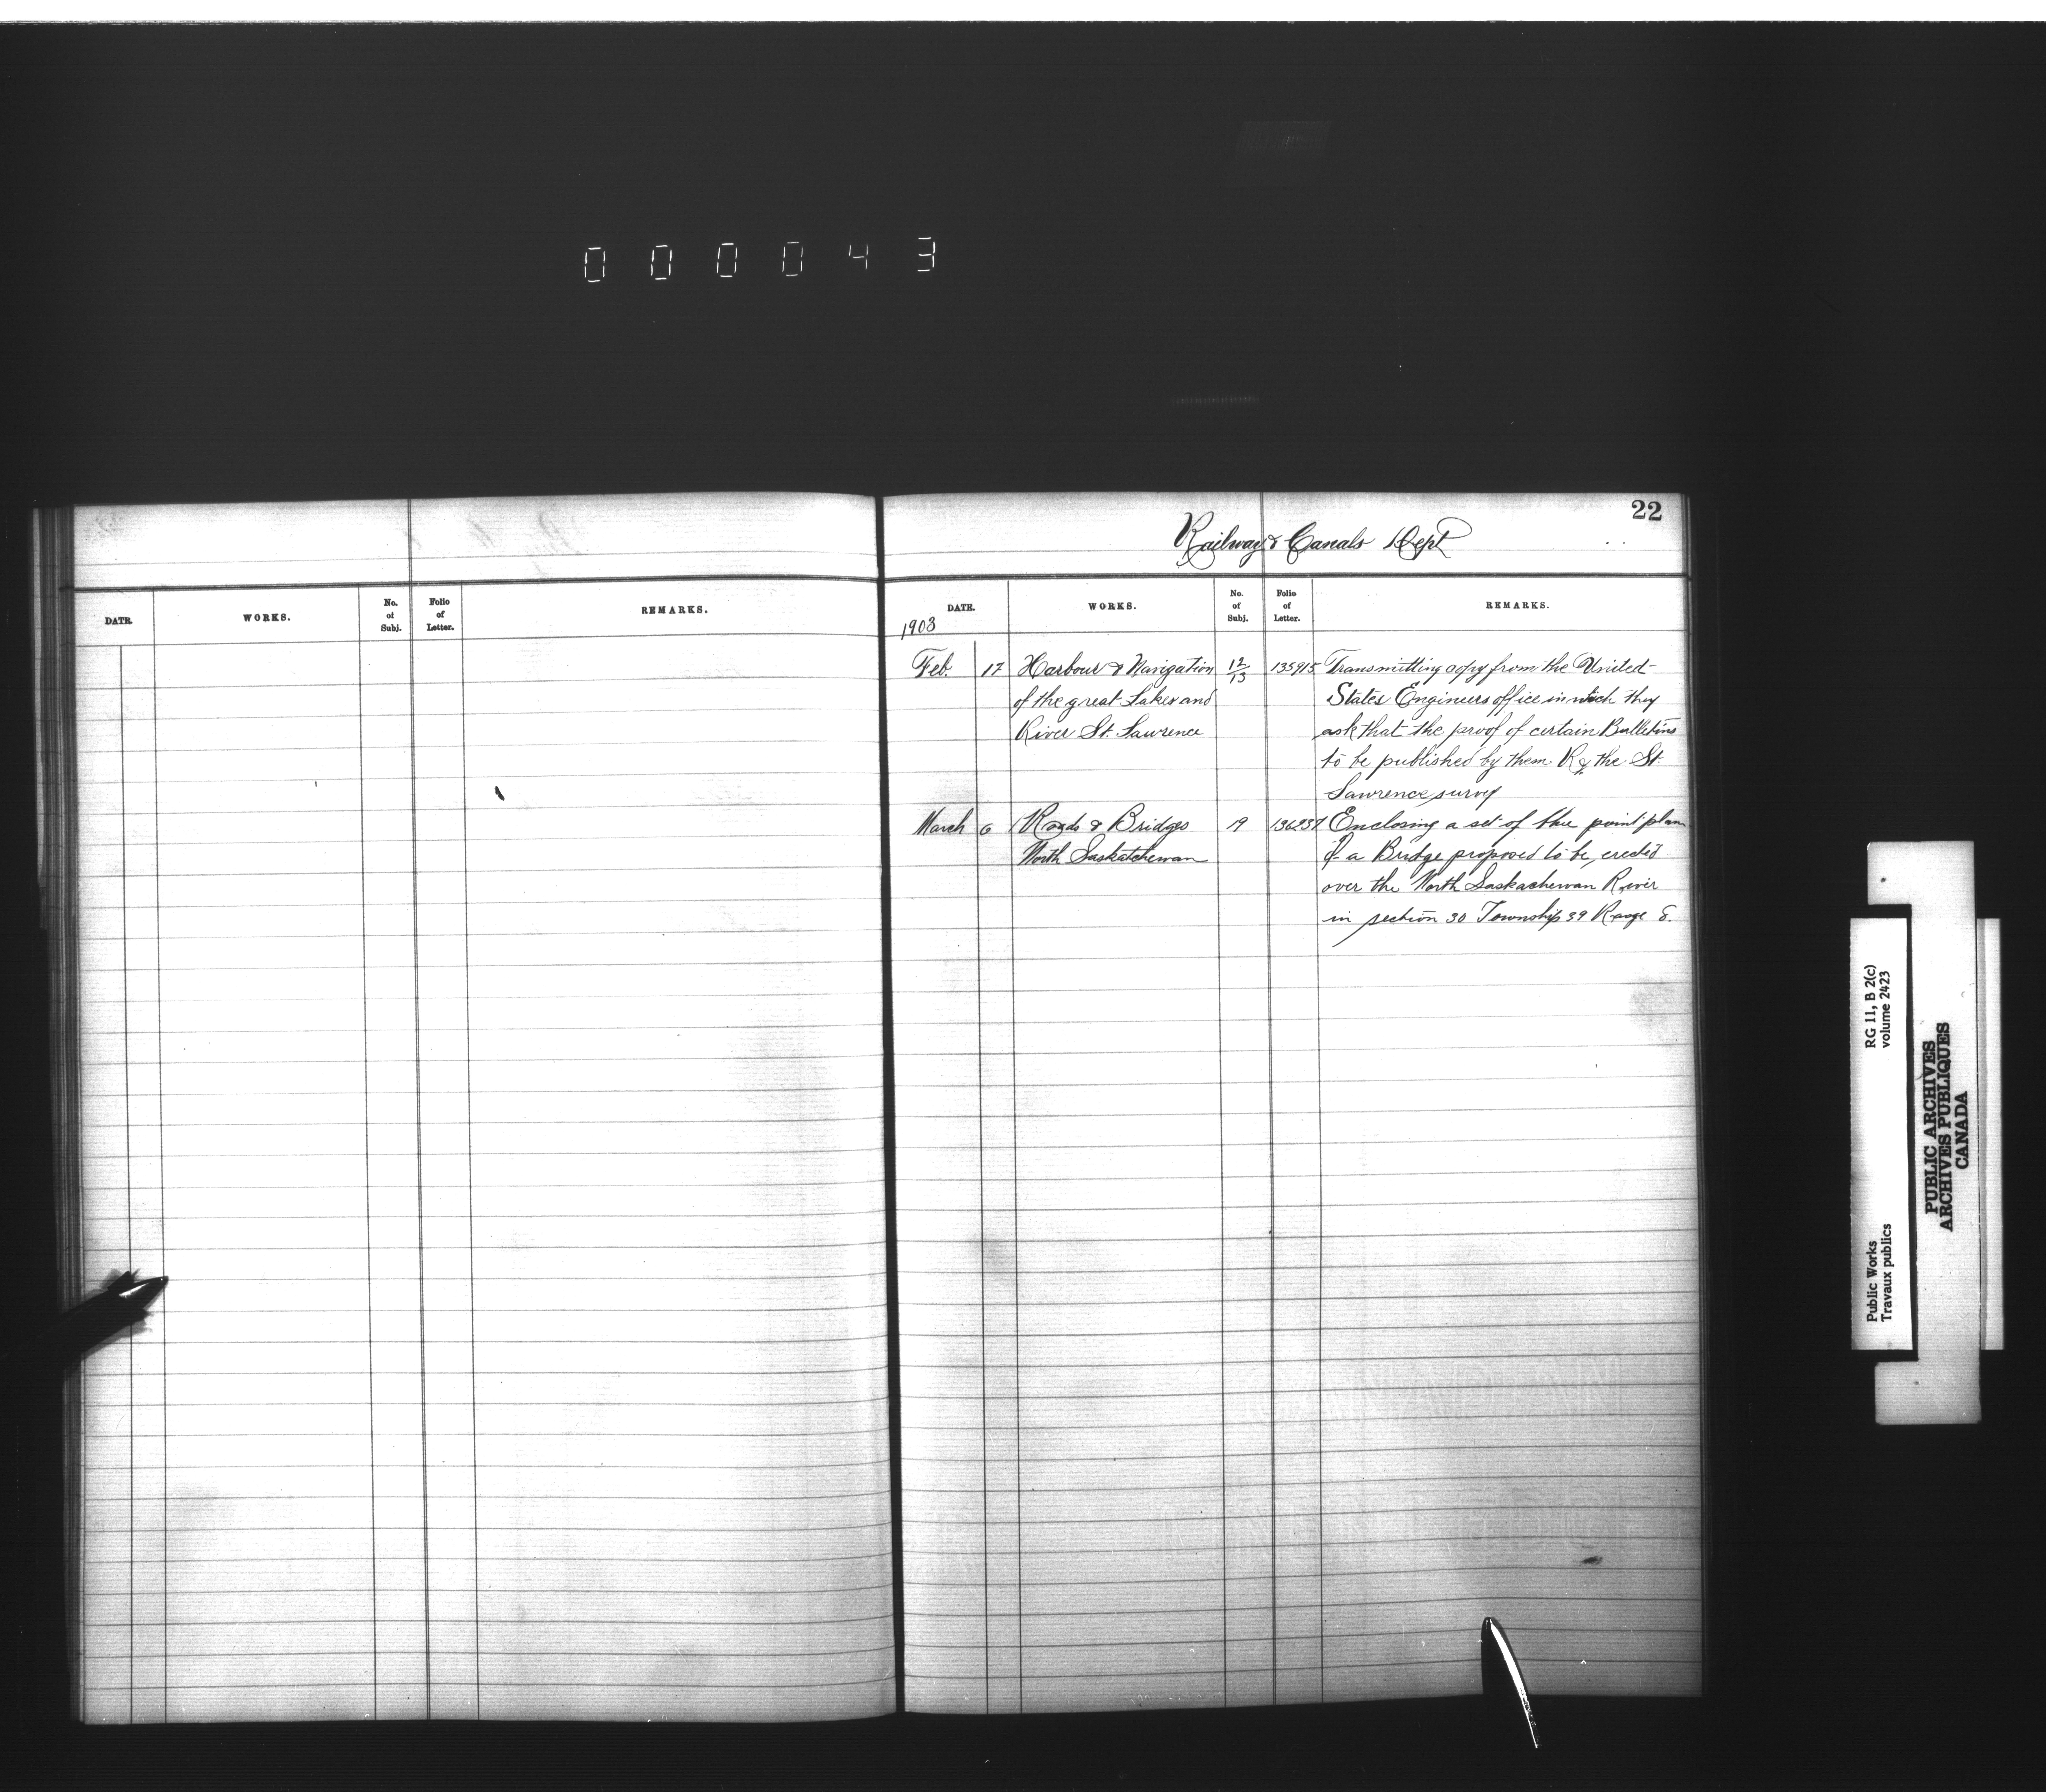 000043
22
Railway & Canals Dept
DATE. WORKS. No. of Subj. Folio of Letter. REMARKS.
DATE. WORKS. No. of Subj. Folio of Letter. REMARKS.
1903
Feb. 17 Harbour & Navigation 12/13 135915 Transmitting copy from the United
of the great Lakes and States Engineers office in which they
River St. Lawrence ask that the proof of certain Bulletins
to be published by them Re the St
Lawrence survey
March 6 Roads & Bridges 19 136237 Enclosing a set of blue print plan
North Saskatchewan of a Bridge proposed to be erected
over the North Saskachewan River
in section 30 Township 39 Range 8.
RG 11, B 2(c)
volume 2423
Public Works
Travaux publics
PUBLIC ARCHIVES
ARCHIVES PUBLIQUES
CANADA